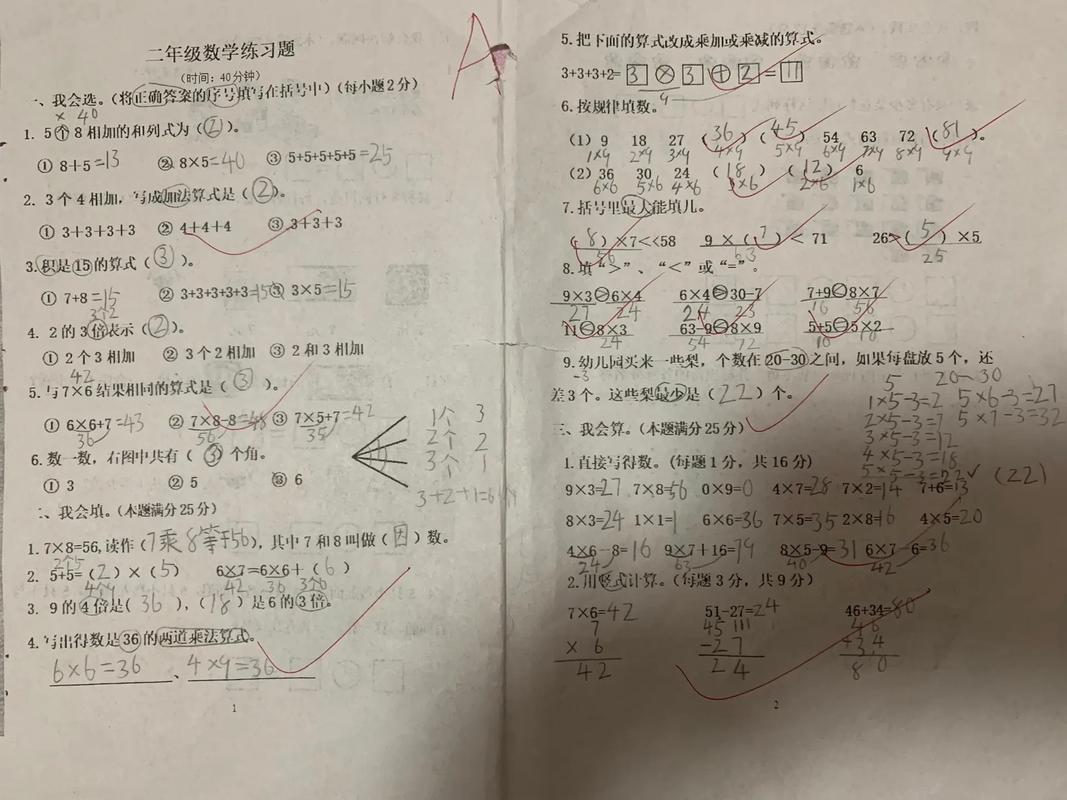 二年级数学练习题
(时间：40分钟)
一、我会选。(将正确答案的序号填写在括号中)(每小题2分)
× 40
1. 5个8相加的和列式为(②)。
① 8+5=13 ② 8×5=40 ③ 5+5+5+5+5=25
2. 3个4相加，写成加法算式是(②)。
① 3+3+3+3 ② 4+4+4 ③ 3+3+3
3.积是15的算式(③)。
① 7+8=15 ② 3+3+3+3+3=15 ③ 3×5=15
3个2
4. 2的3倍表示(②)。
① 2个3相加 ② 3个2相加 ③ 2和3相加
42
5.与7×6结果相同的算式是(③)。
① 6×6+7=43 ② 7×8-8=48 ③ 7×5+7=42
36 56 35
6.数一数，右图中共有(③)个角。
① 3 ② 5 ③ 6
1个 3
2个 2
3个 1
3+2+1=6
二、我会填。(本题满分25分)
1.7×8=56,读作(7乘8等于56),其中7和8叫做(因)数。
2个5
2. 5+5=(2)×(5) 6×7=6×6+(6)
4个9 42 36 3个6
3. 9的4倍是(36),(18)是6的3倍。
4.写出得数是36的两道乘法算式。
6×6=36、4×9=36
1
A
5.把下面的算式改成乘加或乘减的算式。
3+3+3+2=3×3+2=11
9
6.按规律填数。
(1) 9 18 27 (36) (45) 54 63 72 (81)。
1×9 2×9 3×9 4×9 5×9 6×9 7×9 8×9 9×9
(2)36 30 24 (18) (12) 6
6×6 5×6 4×6 3×6 2×6 1×6
7.括号里最大能填几。
(8)×7<<58 9×(7)< 71 26>(5)×5
56 63 25
8.填“>”、“<”或“=”。
9×3>6×4 6×4>30-7 7+9<8×7
27 24 24 23 16 56
11<8×3 63-9<8×9 5+5=5×2
24 54 72 10
9.幼儿园买来一些梨，个数在20-30之间，如果每盘放5个，还
-3
差3个。这些梨最少是(22)个。
5 20~30
1×5-3=2 5×6-3=27
2×5-3=7 5×7-3=32
3×5-3=12
4×5-3=18
5×5-3=22✓ (22)
三、我会算。(本题满分25分)
1.直接写得数。(每题1分，共16分)
9×3=27 7×8=56 0×9=0 4×7=28 7×2=14 7+6=13
8×3=24 1×1=1 6×6=36 7×5=35 2×8=16 4×5=20
4×6-8=16 9×7+16=79 8×5-9=31 6×7-6=36
24 63 40 42
2.用竖式计算。(每题3分，共9分)
7×6=42 51-27=24 46+34=80
7 45 111 46
× 6 -27 +34
42 24 80
2